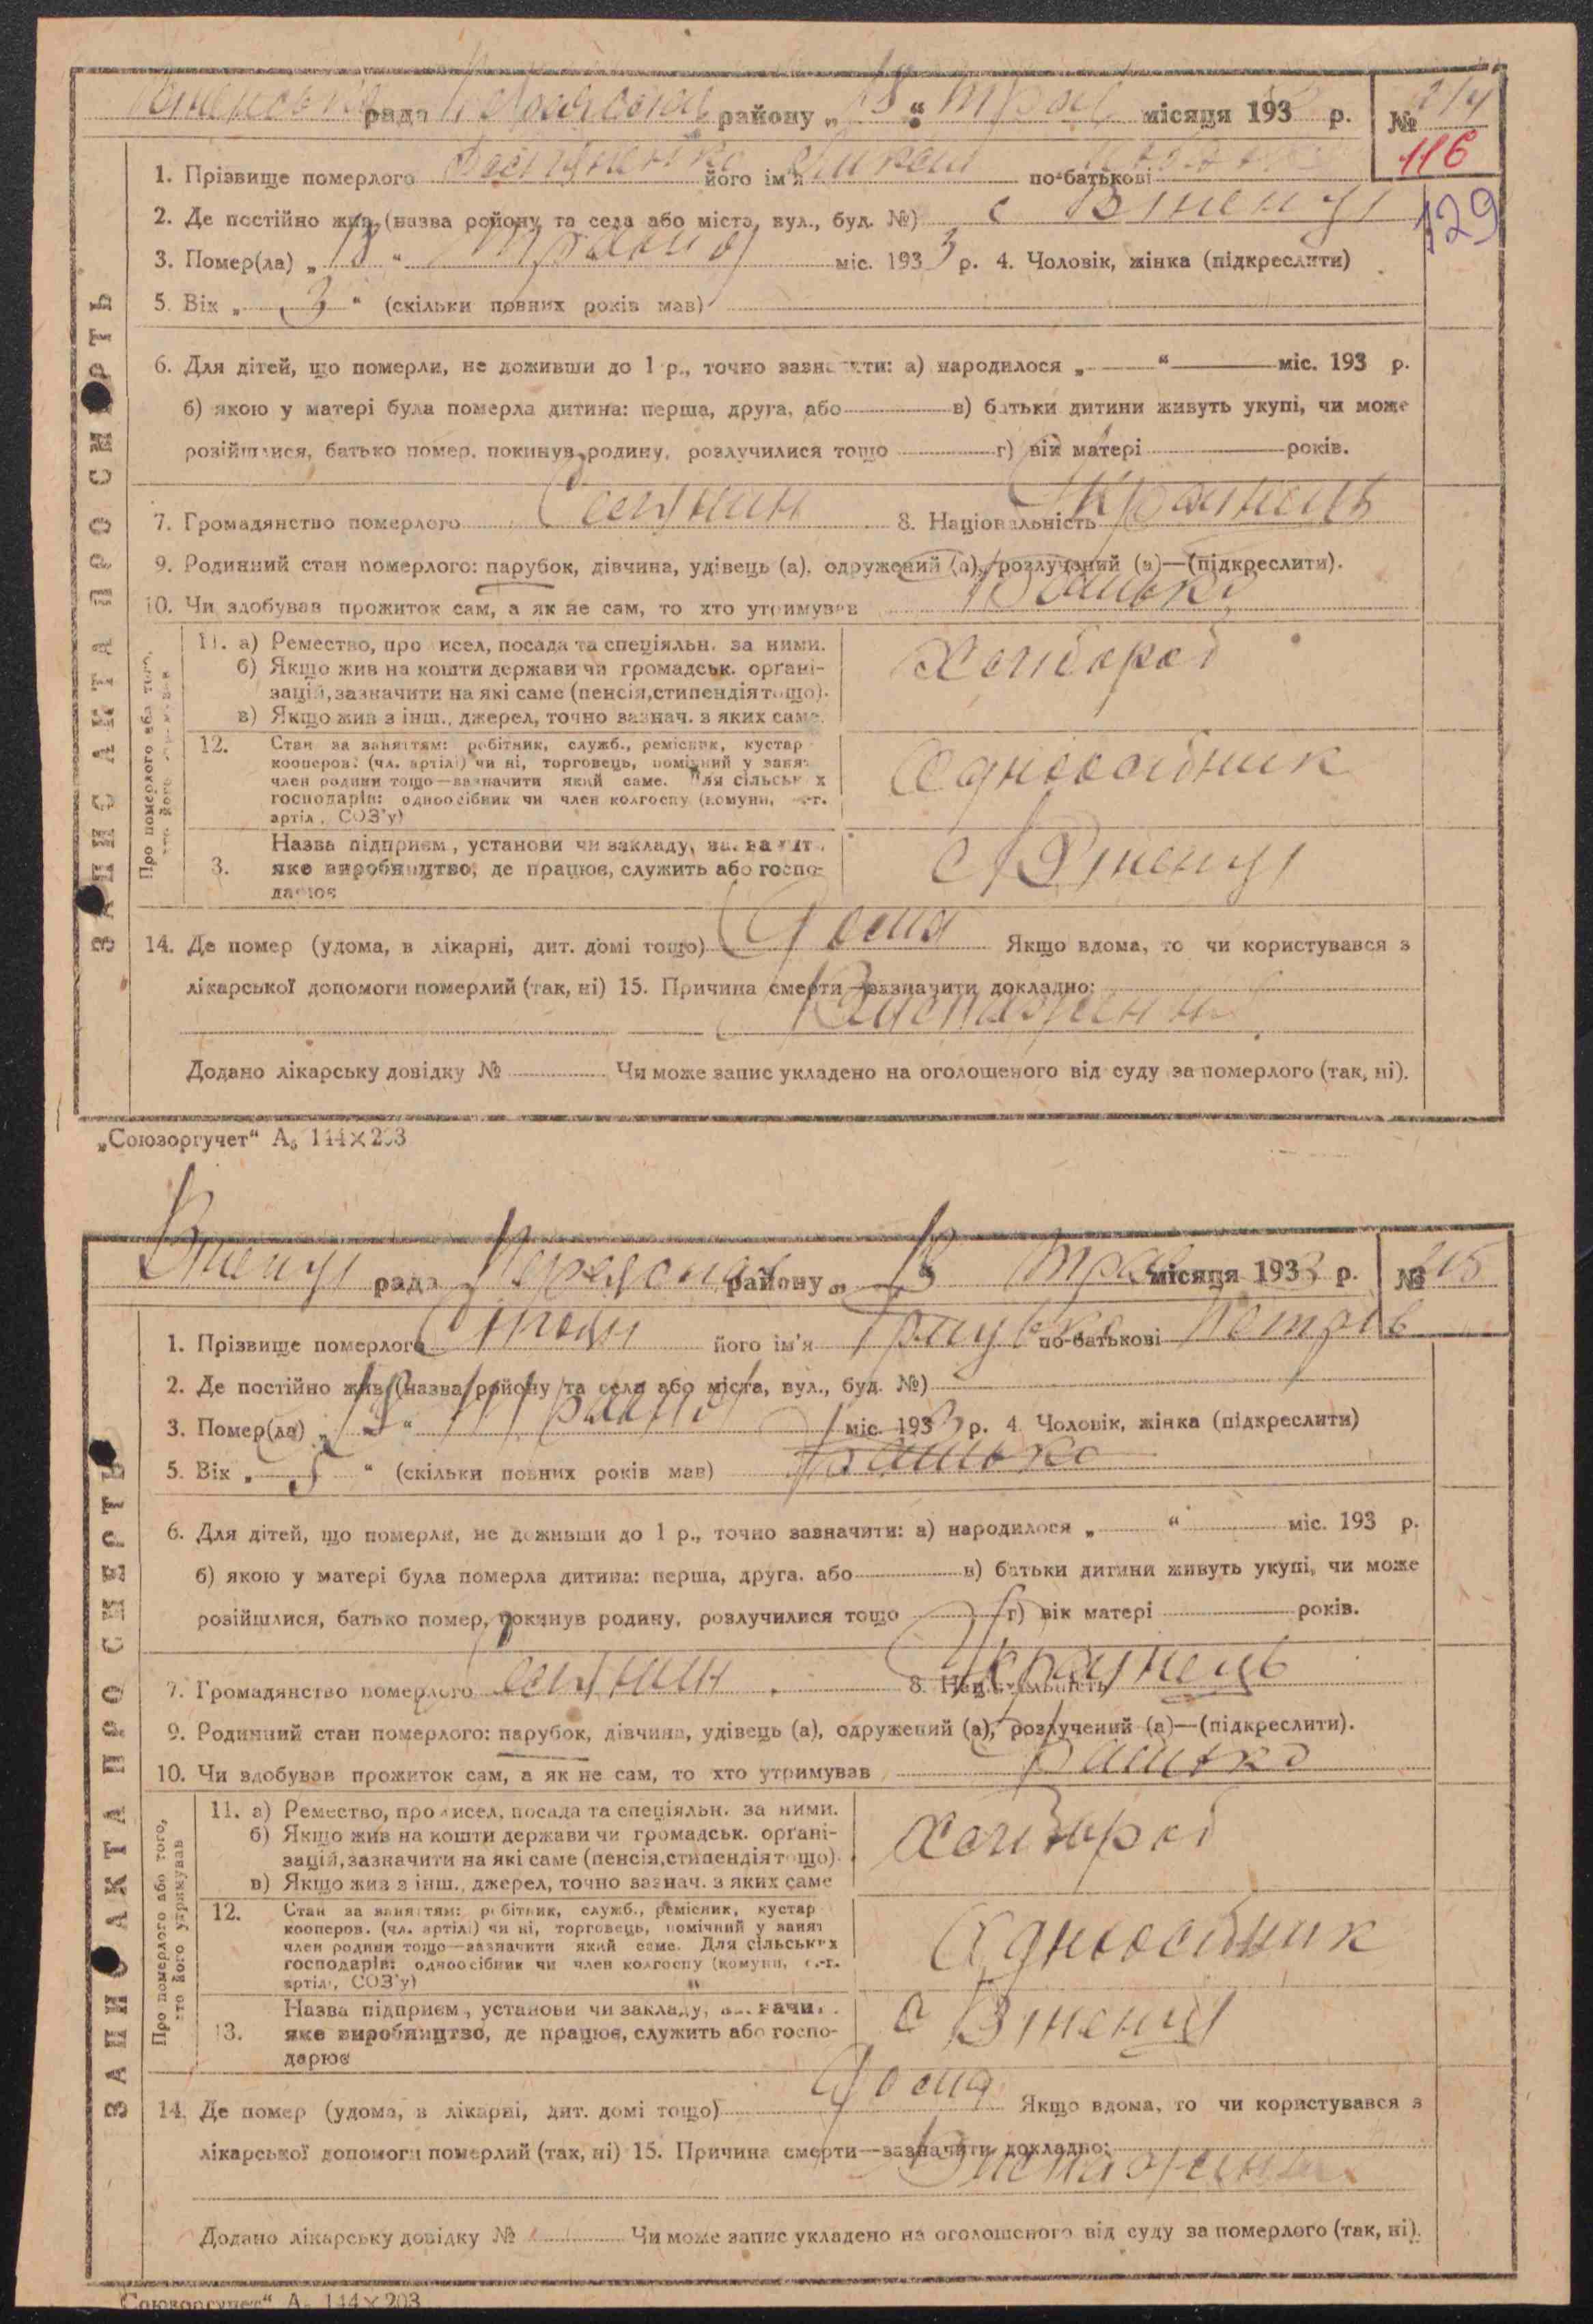 рада району „15“ Трав місяця 193 р. № 214
116
129
ЗАПИС АКТА ПРО СМЕРТЬ
1. Прізвище померлого його ім'я по-батькові
2. Де постійно жив (назва району та села або міста, вул., буд. №) с
3. Помер(ла) „ “ міс. 1933 р. 4. Чоловік, жінка (підкреслити)
5. Вік „ 3 “ (скільки повних років мав)
6. Для дітей, що померли, не доживши до 1 р., точно зазначити: а) народилося „ “ міс. 193 р.
б) якою у матері була померла дитина: перша, друга, або в) батьки дитини живуть укупі, чи може
розійшлися, батько помер, покинув родину, розлучилися тощо г) вік матері років.
7. Громадянство померлого 8. Національність Українець
9. Родинний стан померлого: парубок, дівчина, удівець (а), одружений (а), розлучений (а)—(підкреслити).
10. Чи здобував прожиток сам, а як не сам, то хто утримував Батько
Про померлого або того, хто його утримував
11. а) Ремество, промисел, посада та спеціяльн. за ними. Хлібороб
б) Якщо жив на кошти держави чи громадськ. орґані-
зацій, зазначити на які саме (пенсія, стипендія тощо).
в) Якщо жив з інш., джерел, точно зазнач. з яких саме.
12. Стан за заняттям: робітник, служб., ремісник, кустар
кооперов. (чл. артілі) чи ні, торговець, помічний у занят
член родини тощо—зазначити який саме. Для сільських Одноосібник
господарів: одноосібник чи член колгоспу (комуни, с.-г.
артіл., СОЗ'у)
Назва підприєм., установи чи закладу, зазначити,
яке виробництво, де працює, служить або госпо-
дарює
14. Де помер (удома, в лікарні, дит. домі тощо) Дома Якщо вдома, то чи користувався з
лікарської допомоги померлий (так, ні) 15. Причина смерти—зазначити докладно:
Виснаження
Додано лікарську довідку № Чи може запис укладено на оголошеного від суду за померлого (так, ні).
„Союзоргучет“ А₅ 144×203
рада району „ місяця 1933 р. № 215
ЗАПИС АКТА ПРО СМЕРТЬ
1. Прізвище померлого його ім'я по-батькові Петров
2. Де постійно жив (назва району та села або міста, вул., буд. №)
3. Помер(ла) „ “ міс. 1933 р. 4. Чоловік, жінка (підкреслити)
5. Вік „ 5 “ (скільки повних років мав) Батько
6. Для дітей, що померли, не доживши до 1 р., точно зазначити: а) народилося „ “ міс. 193 р.
б) якою у матері була померла дитина: перша, друга. або в) батьки дитини живуть укупі, чи може
розійшлися, батько помер, покинув родину, розлучилися тощо г) вік матері років.
7. Громадянство померлого 8. Національність Українець
9. Родинний стан померлого: парубок, дівчина, удівець (а), одружений (а), розлучений (а)—(підкреслити).
10. Чи здобував прожиток сам, а як не сам, то хто утримував Батько
Про померлого або того, хто його утримував
11. а) Ремество, промисел, посада та спеціяльн. за ними.
б) Якщо жив на кошти держави чи громадськ. орґані- Хлібороб
зацій, зазначити на які саме (пенсія, стипендія тощо).
в) Якщо жив з інш., джерел, точно зазнач. з яких саме
12. Стан за заняттям: робітник, служб., ремісник, кустар
кооперов. (чл. артілі) чи ні, торговець, помічний у занят
член родини тощо—зазначити який саме. Для сільських Одноосібник
господарів: одноосібник чи член колгоспу (комуни, с.-г.
артіл., СОЗ'у)
Назва підприєм., установи чи закладу, зазначи.
13. яке виробництво, де працює, служить або госпо- с
дарює
14. Де помер (удома, в лікарні, дит. домі тощо) Дома Якщо вдома, то чи користувався з
лікарської допомоги померлий (так, ні) 15. Причина смерти—зазначити докладно:
Виснаження
Додано лікарську довідку № Чи може запис укладено на оголошеного від суду за померлого (так, ні).
Союзоргучет“ А₅ 144×203